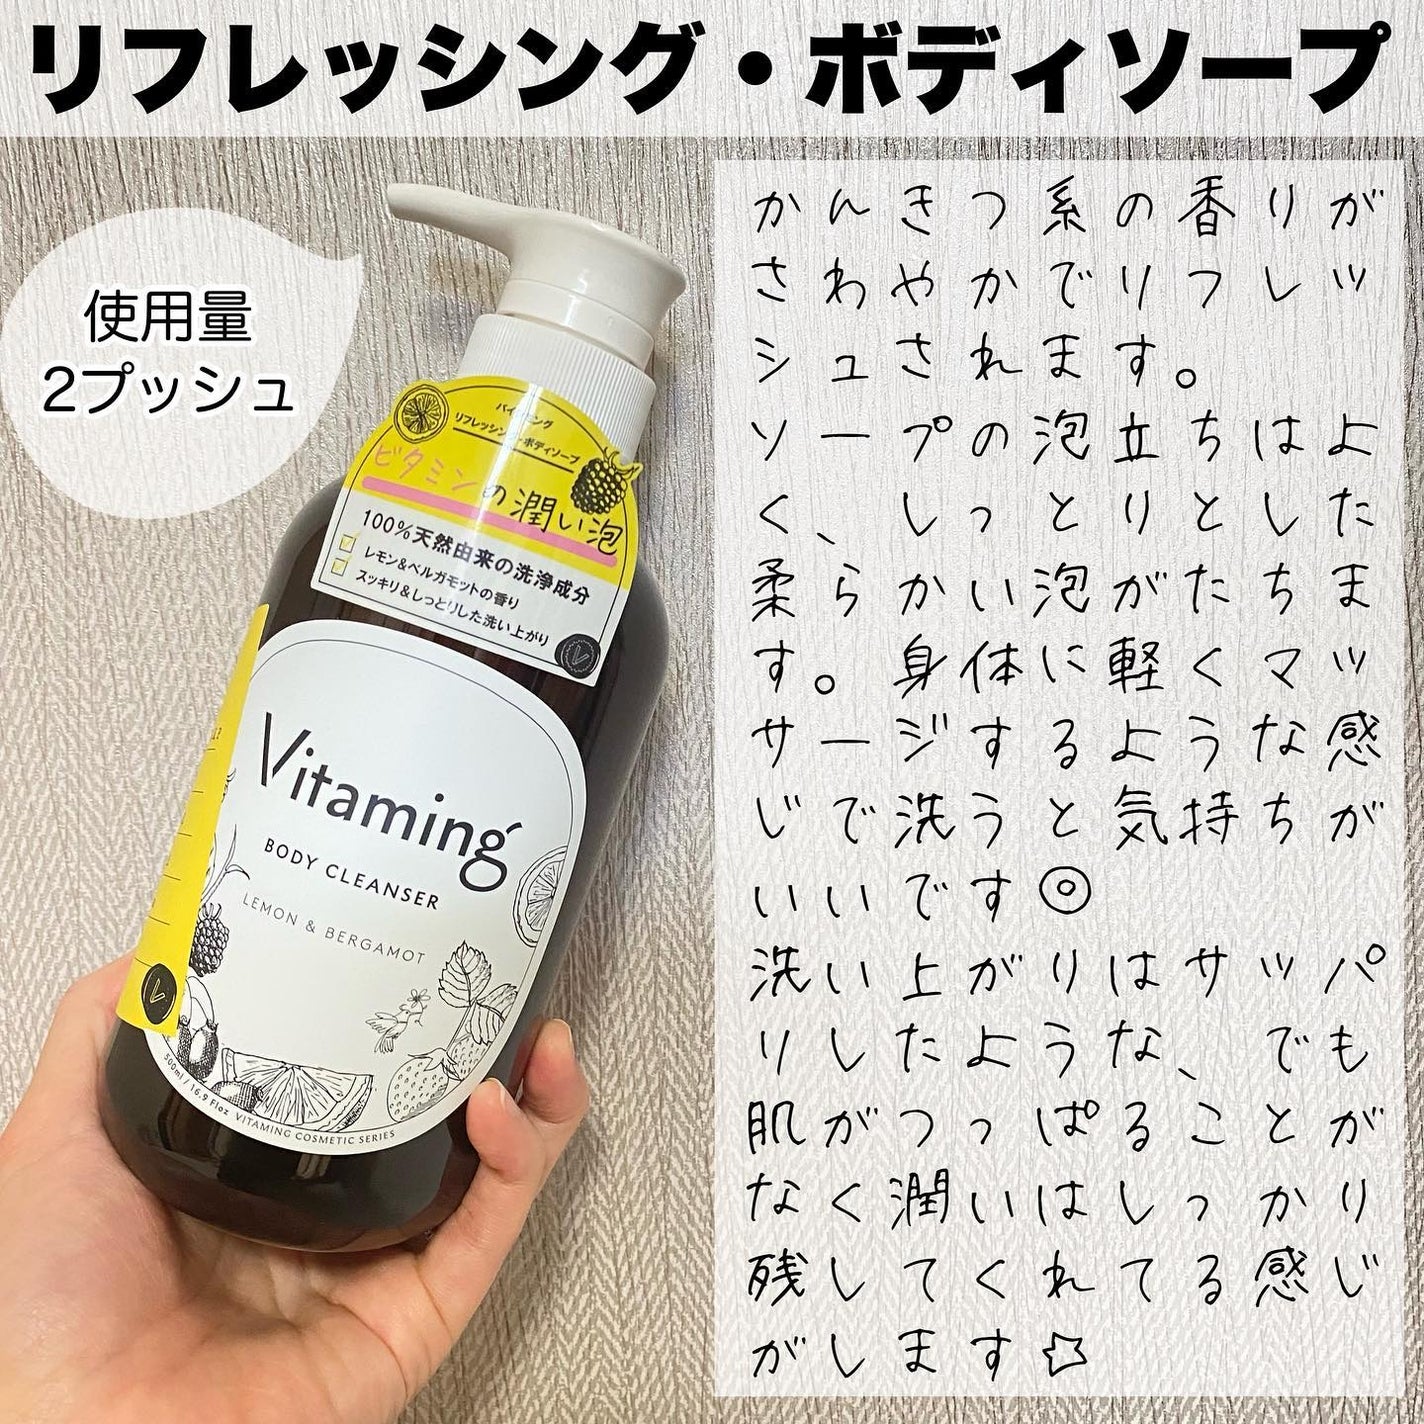 リフレッシング・ボディソープ
使用量
2プッシュ
バイタミング
リフレッシング・ボディソープ
ビタミンの潤い泡
100%天然由来の洗浄成分
レモン&ベルガモットの香り
スッキリ&しっとりした洗い上がり
Vitaming
BODY CLEANSER
LEMON & BERGAMOT
500ml / 16.9 Floz VITAMING COSMETIC SERIES
かんきつ系の香りが
さわやかでリフレッ
シュされます。
ソープの泡立ちはよ
く、しっとりとした
柔らかい泡がたちま
す。身体に軽くマッ
サージするような感
じで洗うと気持ちが
いいです◎
洗い上がりはサッパ
リしたような、でも
肌がつっぱることが
なく潤いはしっかり
残してくれてる感じ
がします☆